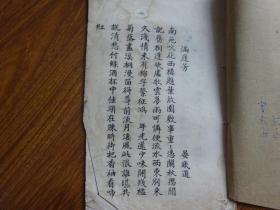 滿庭芳
晏幾道
南苑吹花西樓題葉故園歡事重〻憑闌秋思閒
記舊相逢幾處歌雲夢雨可憐便流水西東別來
久淺情未有錦字繫征鴻 年光還少味開殘檻
菊落盡溪桐漫留得尊前淡月西風此恨誰堪共
說清愁付綠酒杯中佳期在歸時待把香袖看啼
紅